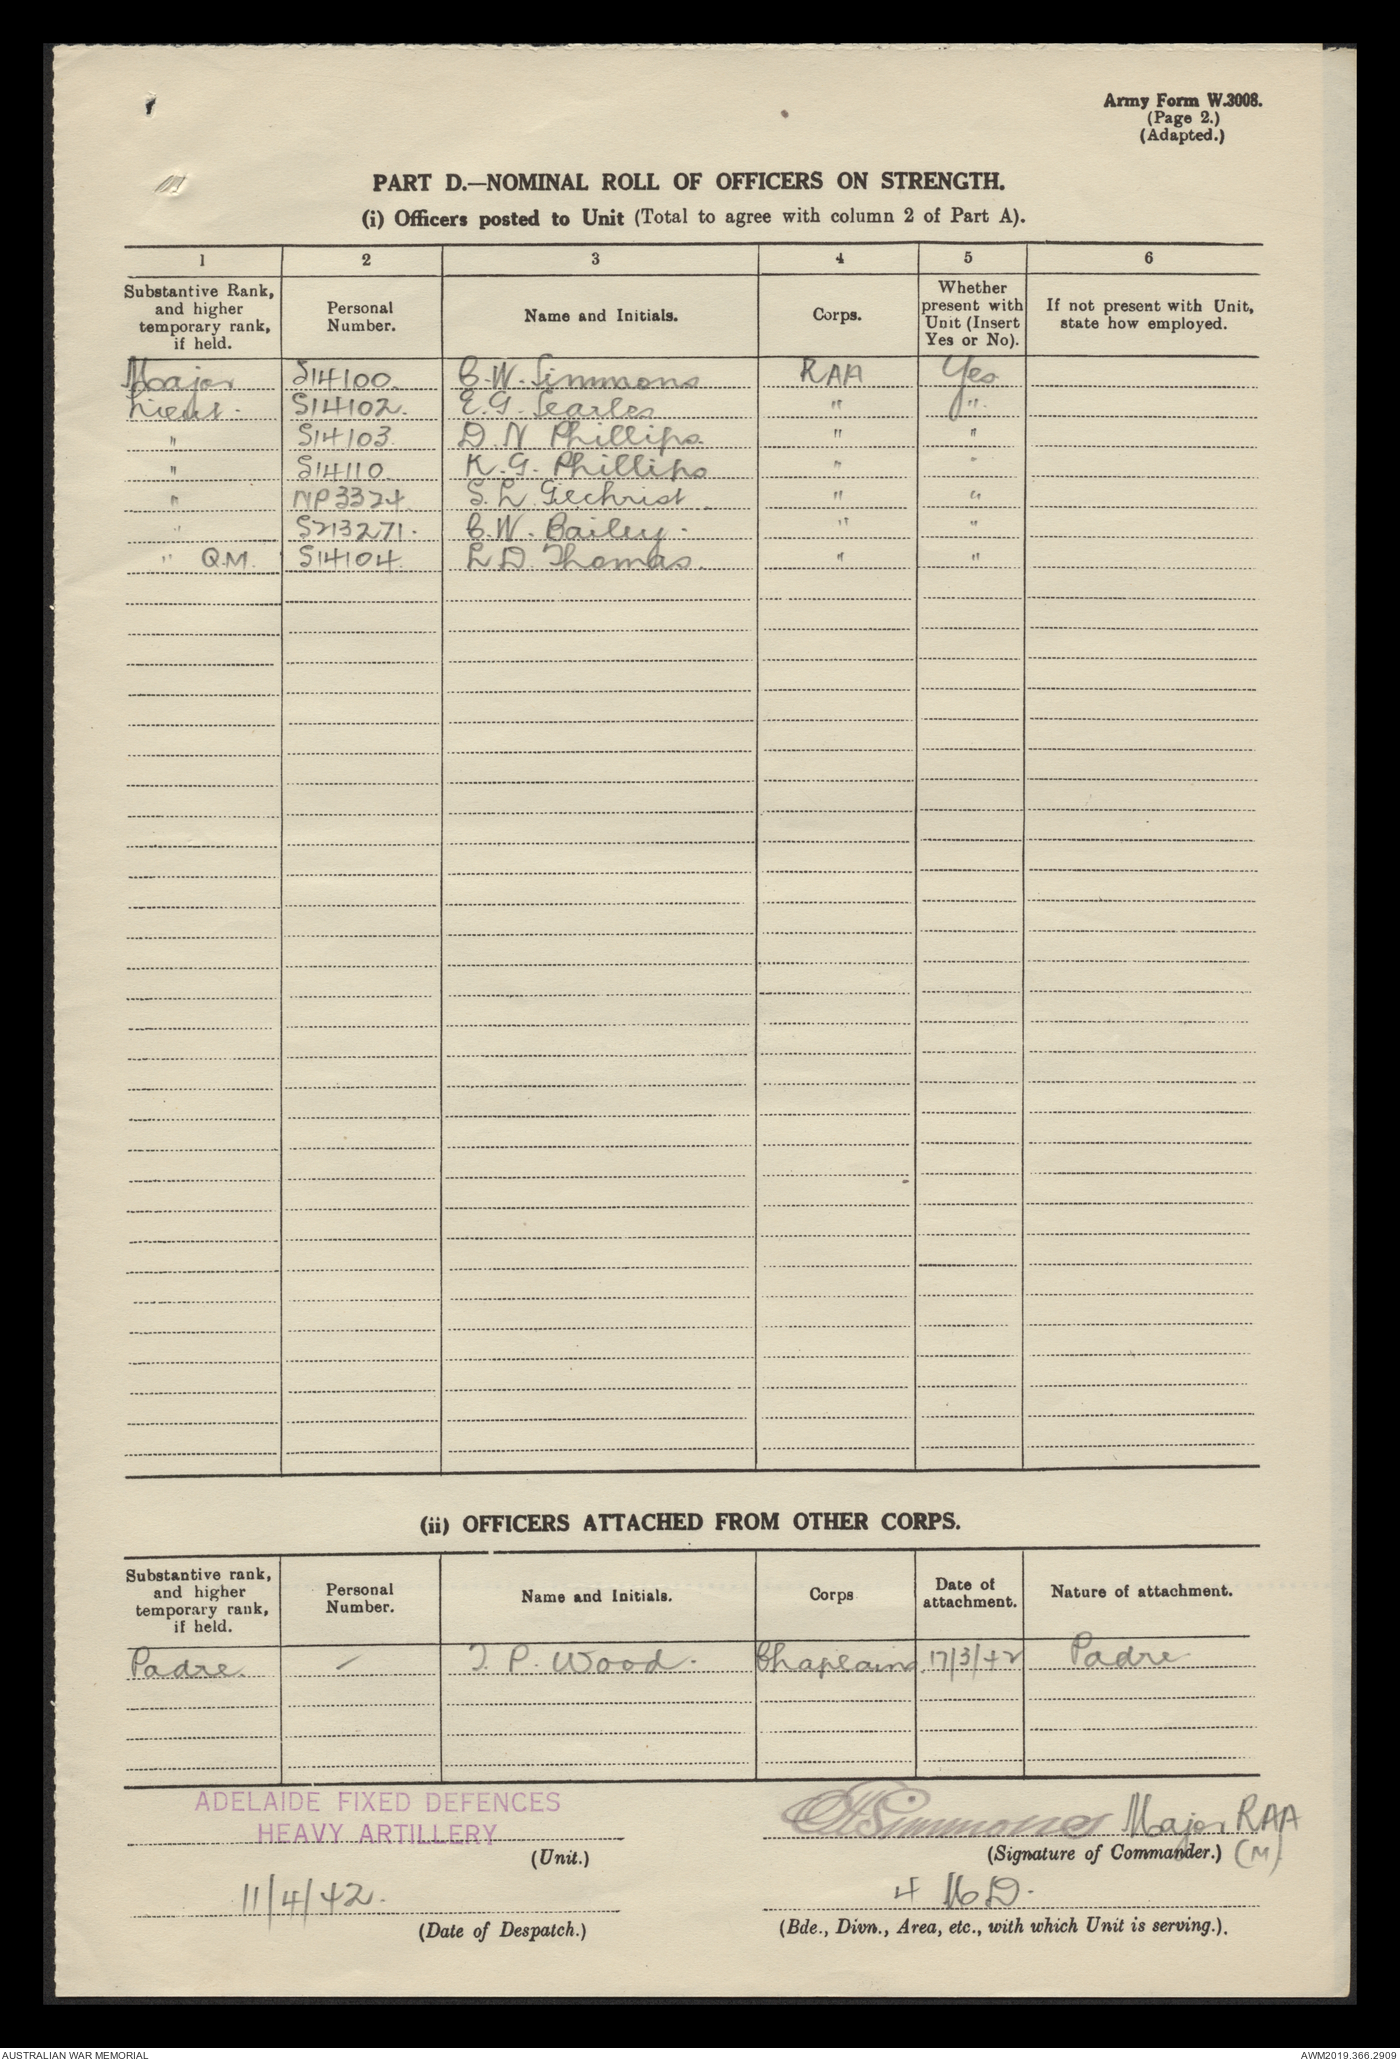 Army Form W.3008.
(Page 2.)
(Adapted.)
PART D.—NOMINAL ROLL OF OFFICERS ON STRENGTH.
(i) Officers posted to Unit (Total to agree with column 2 of Part A).
1 2 3 4 5 6
Substantive Rank, and higher temporary rank, if held. Personal Number. Name and Initials. Corps. Whether present with Unit (Insert Yes or No). If not present with Unit, state how employed.
Major S14100. C.W. Simmons RAA Yes
Lieut. S14102. E.G. Searles " "
" S14103. D.N Phillips. " "
" S14110. K.G. Phillips " "
" NP3324. S.L. Gilchrist. " "
" S213271. C.W. Bailey. " "
" Q.M. S14104. L.D. Thomas. " "
(ii) OFFICERS ATTACHED FROM OTHER CORPS.
Substantive rank, and higher temporary rank, if held. Personal Number. Name and Initials. Corps Date of attachment. Nature of attachment.
Padre. – T. P. Wood. Chaplains 17/3/42 Padre
ADELAIDE FIXED DEFENCES
HEAVY ARTILLERY
(Unit.)
Simmons Major RAA
(Signature of Commander.) (M)
11/4/42.
(Date of Despatch.)
4 MD.
(Bde., Divn., Area, etc., with which Unit is serving.).
AUSTRALIAN WAR MEMORIAL
AWM2019.366.2909